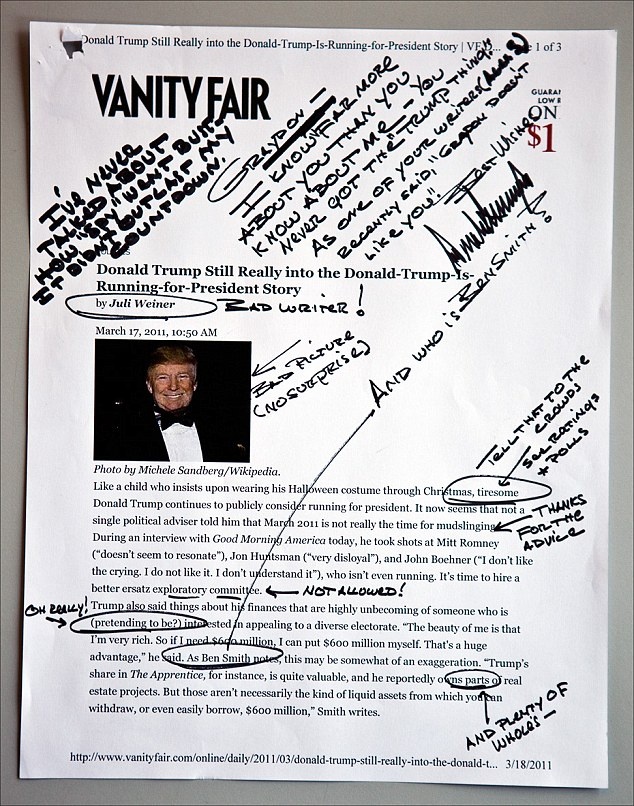 Donald Trump Still Really into the Donald-Trump-Is-Running-for-President Story | VF D... 1 of 3
VANITY FAIR
GUARAN
LOW R
ON
$1
GRAYDON —
I KNOW FAR MORE
ABOUT YOU THAN YOU
KNOW ABOUT ME — YOU
NEVER GOT THE "TRUMP THING"!
AS ONE OF YOUR WRITERS
RECENTLY SAID, "GRAYDON DOESN'T
LIKE YOU!"
BEST WISHES
I'VE NEVER
TALKED ABOUT
HOW "SPY" WENT BUST.
IT DIDN'T OUTLAST MY
COUNTDOWN!
Donald Trump Still Really into the Donald-Trump-Is-
Running-for-President Story
by Juli Weiner
BAD WRITER!
AND WHO IS BEN SMITH?
March 17, 2011, 10:50 AM
BAD PICTURE
(NO SURPRISE)
Photo by Michele Sandberg/Wikipedia.
TELL THAT TO THE
CROWDS
SEE RATINGS
+ POLLS
Like a child who insists upon wearing his Halloween costume through Christmas, tiresome
Donald Trump continues to publicly consider running for president. It now seems that not a
single political adviser told him that March 2011 is not really the time for mudslinging.
THANKS
FOR THE
ADVICE
During an interview with Good Morning America today, he took shots at Mitt Romney
("doesn't seem to resonate"), Jon Huntsman ("very disloyal"), and John Boehner ("I don't like
the crying. I do not like it. I don't understand it"), who isn't even running. It's time to hire a
better ersatz exploratory committee.
NOT ALLOWED!
OH REALLY!
Trump also said things about his finances that are highly unbecoming of someone who is
(pretending to be?) interested in appealing to a diverse electorate. "The beauty of me is that
I'm very rich. So if I need $600 million, I can put $600 million myself. That's a huge
advantage," he said. As Ben Smith notes, this may be somewhat of an exaggeration. "Trump's
share in The Apprentice, for instance, is quite valuable, and he reportedly owns parts of real
estate projects. But those aren't necessarily the kind of liquid assets from which you can
withdraw, or even easily borrow, $600 million," Smith writes.
AND PLENTY OF
WHOLES —
http://www.vanityfair.com/online/daily/2011/03/donald-trump-still-really-into-the-donald-t... 3/18/2011